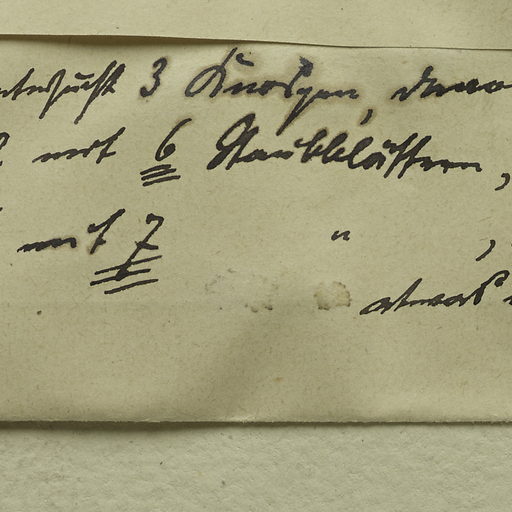 untersucht 3 Knospen, davon
2 mit 6 Staubblättern,
1 mit 7 " ,
etwas